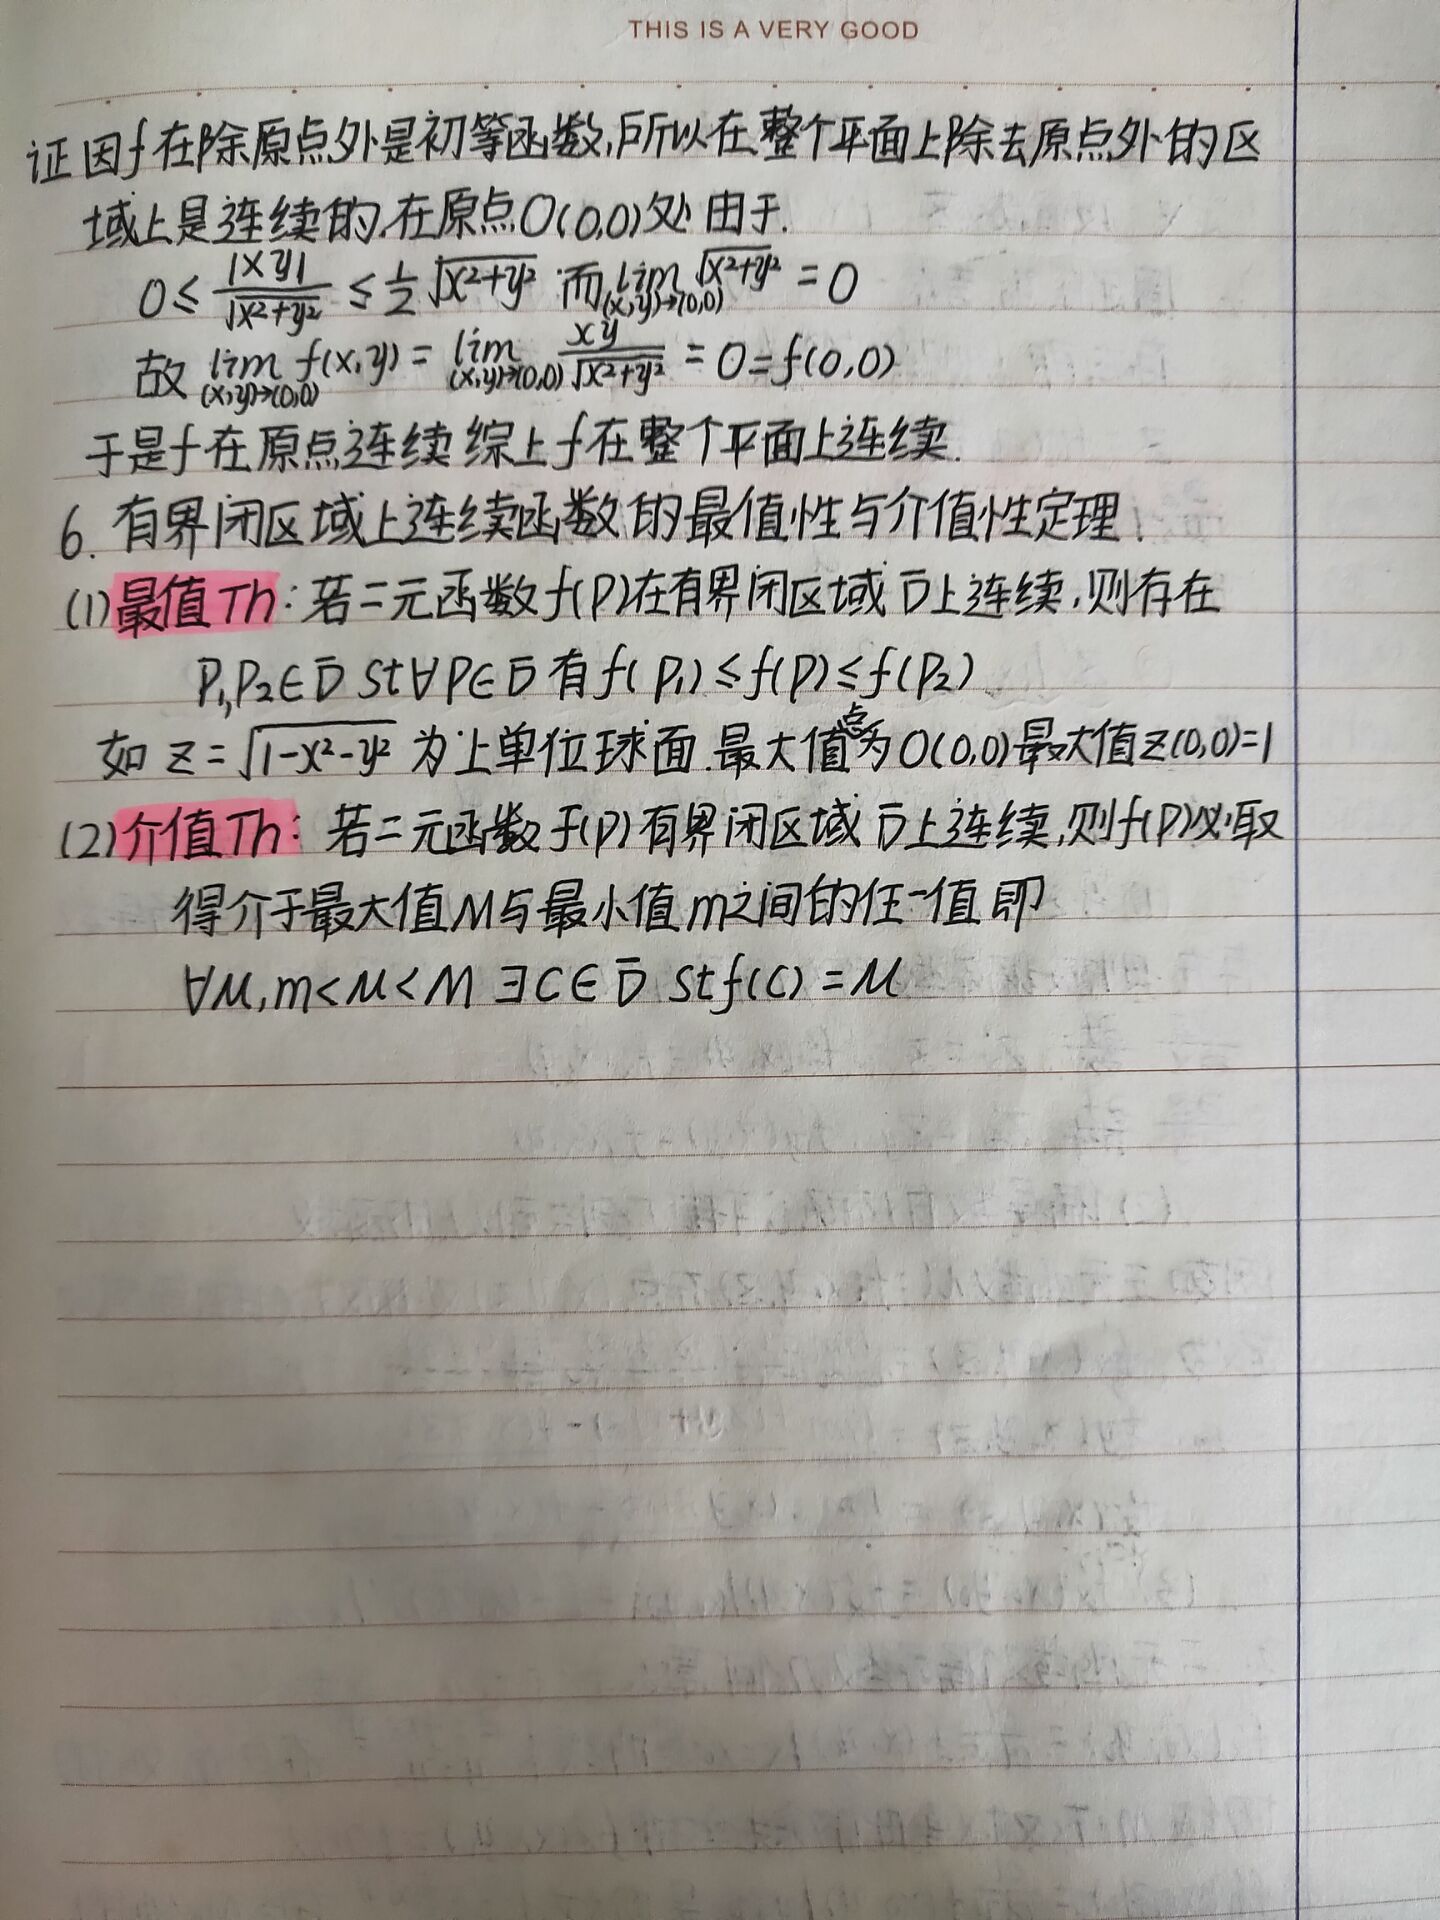 THIS IS A VERY GOOD
证因f在除原点外是初等函数,所以在整个平面上除去原点外的区
域上是连续的.在原点O(0,0)处 由于.
0≤|xy|/√(x²+y²)≤1/2√(x²+y²) 而lim(x,y)→(0,0)√(x²+y²)=0
故lim(x,y)→(0,0)f(x,y)=lim(x,y)→(0,0)xy/√(x²+y²)=0=f(0,0)
于是f在原点连续 综上f在整个平面上连续.
6.有界闭区域上连续函数的最值性与介值性定理!
(1)最值Th:若二元函数f(P)在有界闭区域D̄上连续,则存在
P₁,P₂∈D̄ st∀P∈D̄ 有f(P₁)≤f(P)≤f(P₂)
如z=√(1-x²-y²)为上单位球面.最大值点为O(0,0)最大值z(0,0)=1
(2)介值Th:若二元函数f(P)有界闭区域D̄上连续,则f(P)必取
得介于最大值M与最小值m之间的任一值 即
∀μ,m<μ<M ∃C∈D̄ st f(C)=μ